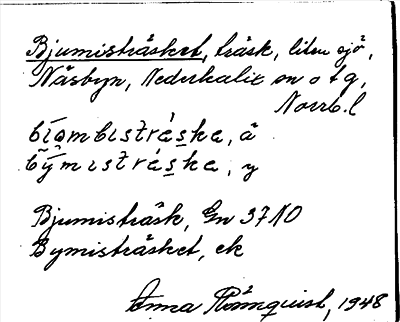 Bjumisträsket, träsk, liten sjö,
Näsbyn, Nederkalix sn o tg,
Norrb.l
bíombıstrǽska, ä
bȳ́mıstrǽska, y
Bjumisträsk, Gn 37 NO
Bymisträsket, ek
Anna Rönnquist, 1948